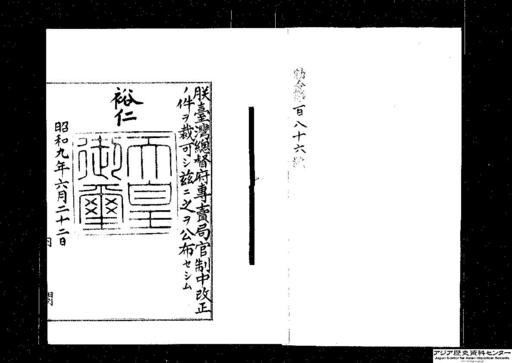 勅令第百八十六號
朕臺灣總督府專賣局官制中改正
ノ件ヲ裁可シ茲ニ之ヲ公布セシム
裕仁
天皇
御璽
昭和九年六月二十二日
アジア歴史資料センター
Japan Center for Asian Historical Records